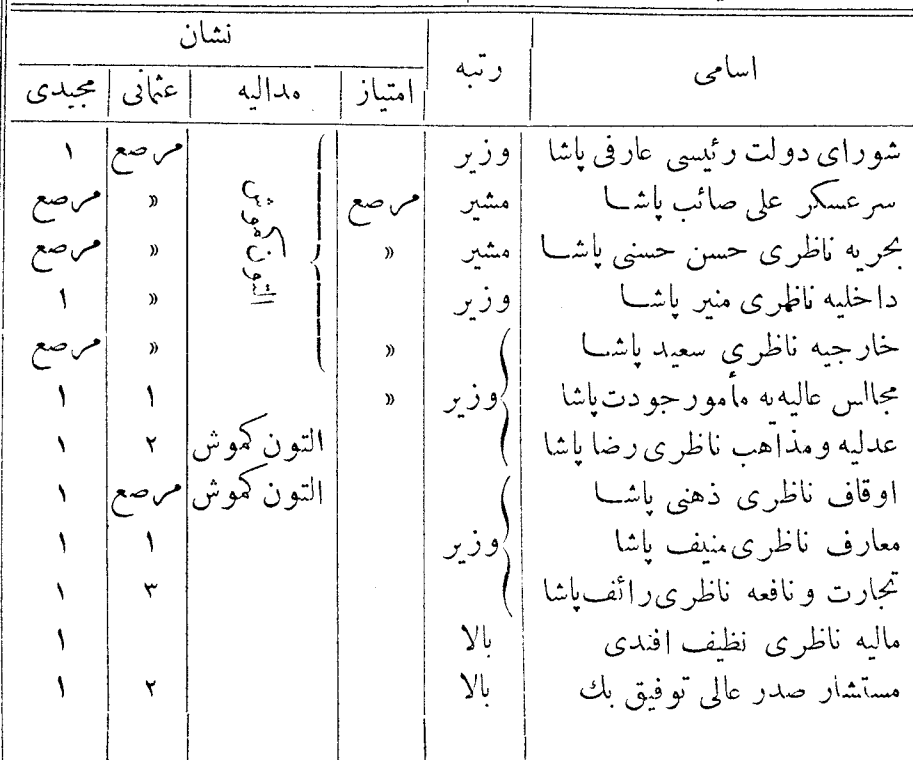 اسامی رتبه نشان
امتیاز مدالیه عثمانی مجیدی
شورای دولت رئیسی عارفی پاشا وزیر مرصع ۱
سرعسکر علی صائب پاشا مشیر مرصع » مرصع
بحریه ناظری حسن حسنی پاشا مشیر » » مرصع
داخلیه ناظری منیر پاشا وزیر » ۱
التون کموش
خارجیه ناظری سعید پاشا » » مرصع
مجالس عالیه‌یه مأمور جودت پاشا وزیر » ۱ ۱
عدلیه و مذاهب ناظری رضا پاشا التون کموش ۲ ۱
اوقاف ناظری ذهنی پاشا التون کموش مرصع ۱
معارف ناظری منیف پاشا وزیر ۱ ۱
تجارت و نافعه ناظری رائف پاشا ۳ ۱
مالیه ناظری نظیف افندی بالا ۱
مستشار صدر عالی توفیق بك بالا ۲ ۱